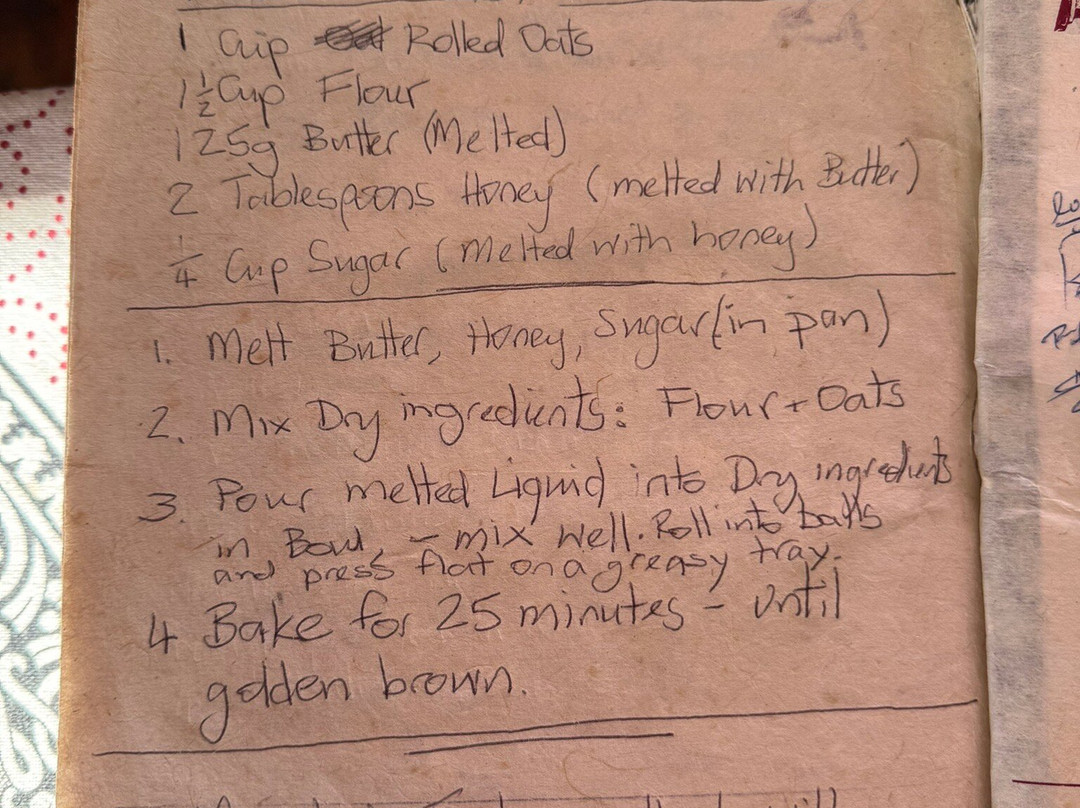 1 Cup Rolled Oats
1 1/2 Cup Flour
125g Butter (Melted)
2 Tablespoons Honey (melted with Butter)
1/4 Cup Sugar (Melted with honey)
1. Melt Butter, Honey, Sugar (in pan)
2. Mix Dry ingredients: Flour + Oats
3. Pour melted Liquid into Dry ingredients
in Bowl, - mix well. Roll into balls
and press flat on a greasy tray.
4 Bake for 25 minutes - until
golden brown.